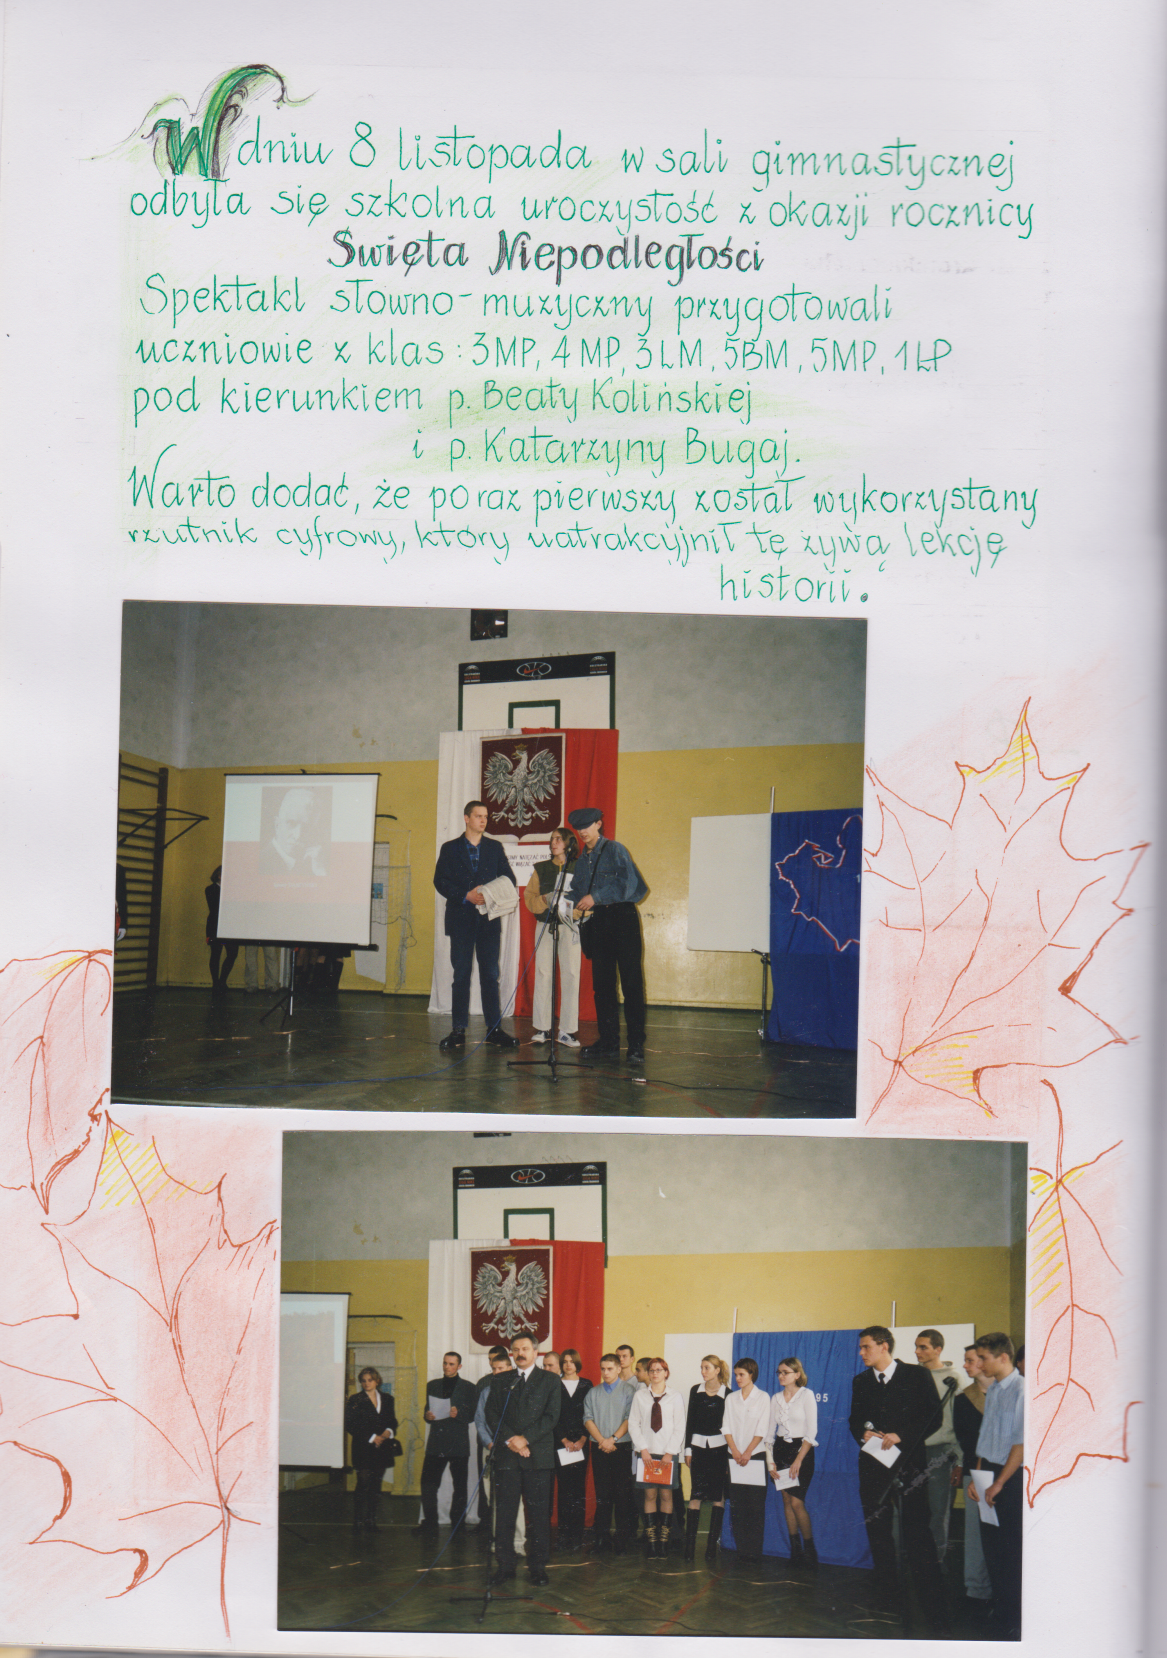 W dniu 8 listopada w sali gimnastycznej
odbyła się szkolna uroczystość z okazji rocznicy
Święta Niepodległości
Spektakl słowno-muzyczny przygotowali
uczniowie z klas: 3MP, 4MP, 3LM, 5BM, 5MP, 1ŁP
pod kierunkiem p. Beaty Kolińskiej
i p. Katarzyny Bugaj.
Warto dodać, że po raz pierwszy został wykorzystany
rzutnik cyfrowy, który uatrakcyjnił tę żywą lekcję
historii.
95